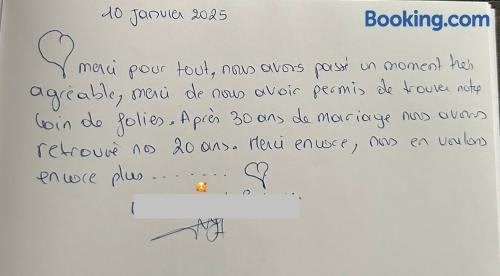 10 Janvier 2025
Booking.com
merci pour tout, nous avons passé un moment très
agréable, merci de nous avoir permis de trouver notre
coin de folies. Après 30 ans de mariage nous avons
retrouvé nos 20 ans. Merci encore, nous en voulons
encore plus .......